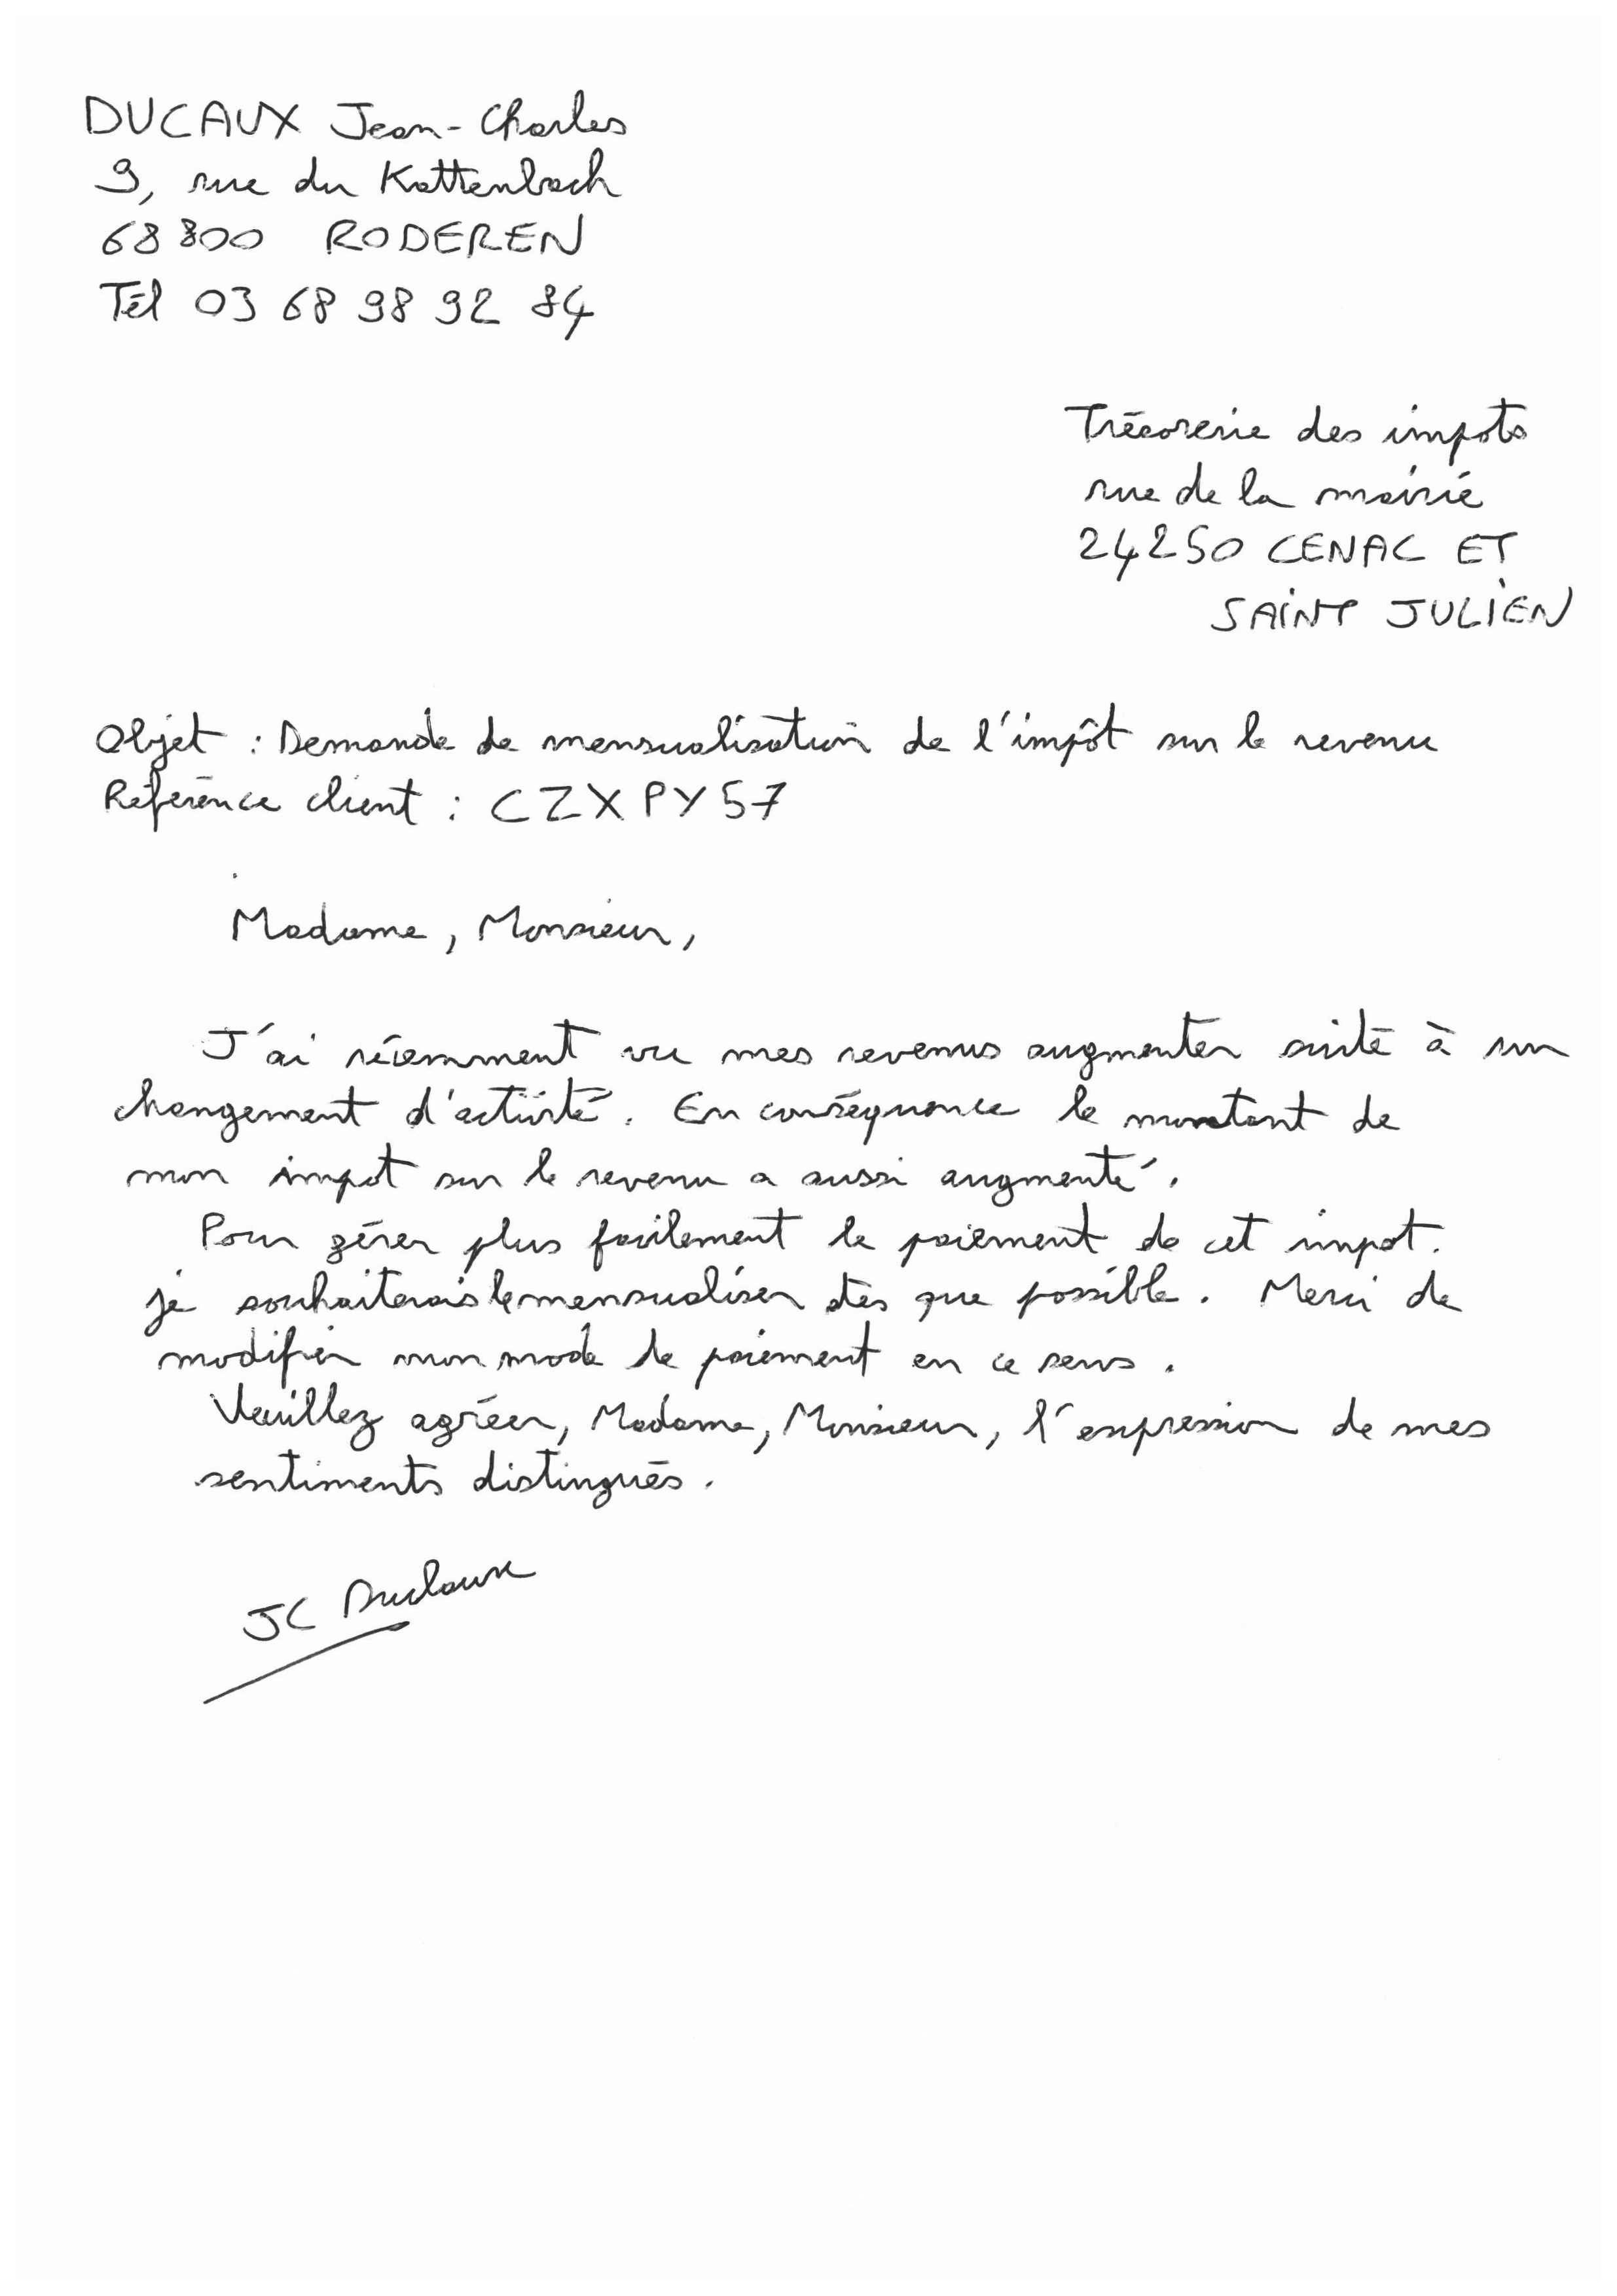 DUCAUX Jean-Charles
9, rue du Kattenbach
68800 RODEREN
Tél 03 68 98 92 84
Trésorerie des impots
rue de la mairie
24250 CENAC ET
SAINT JULIEN
Objet : Demande de mensualisation de l'impôt sur le revenu
Référence client : CZXPY57
Madame, Monsieur,
J'ai récemment vu mes revenus augmenter suite à un
changement d'activité. En conséquence le montant de
mon impot sur le revenu a aussi augmenté.
Pour gérer plus facilement le paiement de cet impot.
je souhaiterais le mensualiser dès que possible. Merci de
modifier mon mode de paiement en ce sens.
Veuillez agréer, Madame, Monsieur, l'expression de mes
sentiments distingués.
JC Ducaux